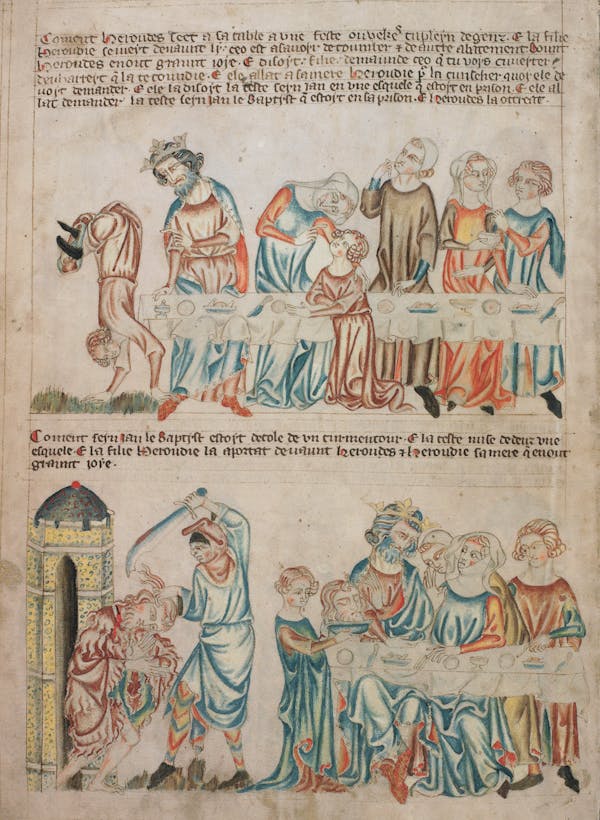 Coment Heroudes seet a sa table a une feste
plein de genz. E la filie
Heroudie devaunt ly. ceo est asavoir de tumber & de autre abatement dount
Heroudes en out graunt joye. E disoyt. filie. demaunde ceo q tu voys
E ele allat a sa mere Heroudie quoy ele de
voyt demander. E ele la disoyt la teste seyn Jan en une esquele q estoyt en prison. E ele al
lat demander la teste seyn Jan le Baptyst q estoyt en sa prison. E Heroudes la ottreat.
Coment seyn Jan le Baptyst estoyt decole de un turmentour. E la teste mise dedenz une
esquele. E la filie Heroudie la aportat devaunt Heroudes & Heroudie sa mere q en out
graunt joye.